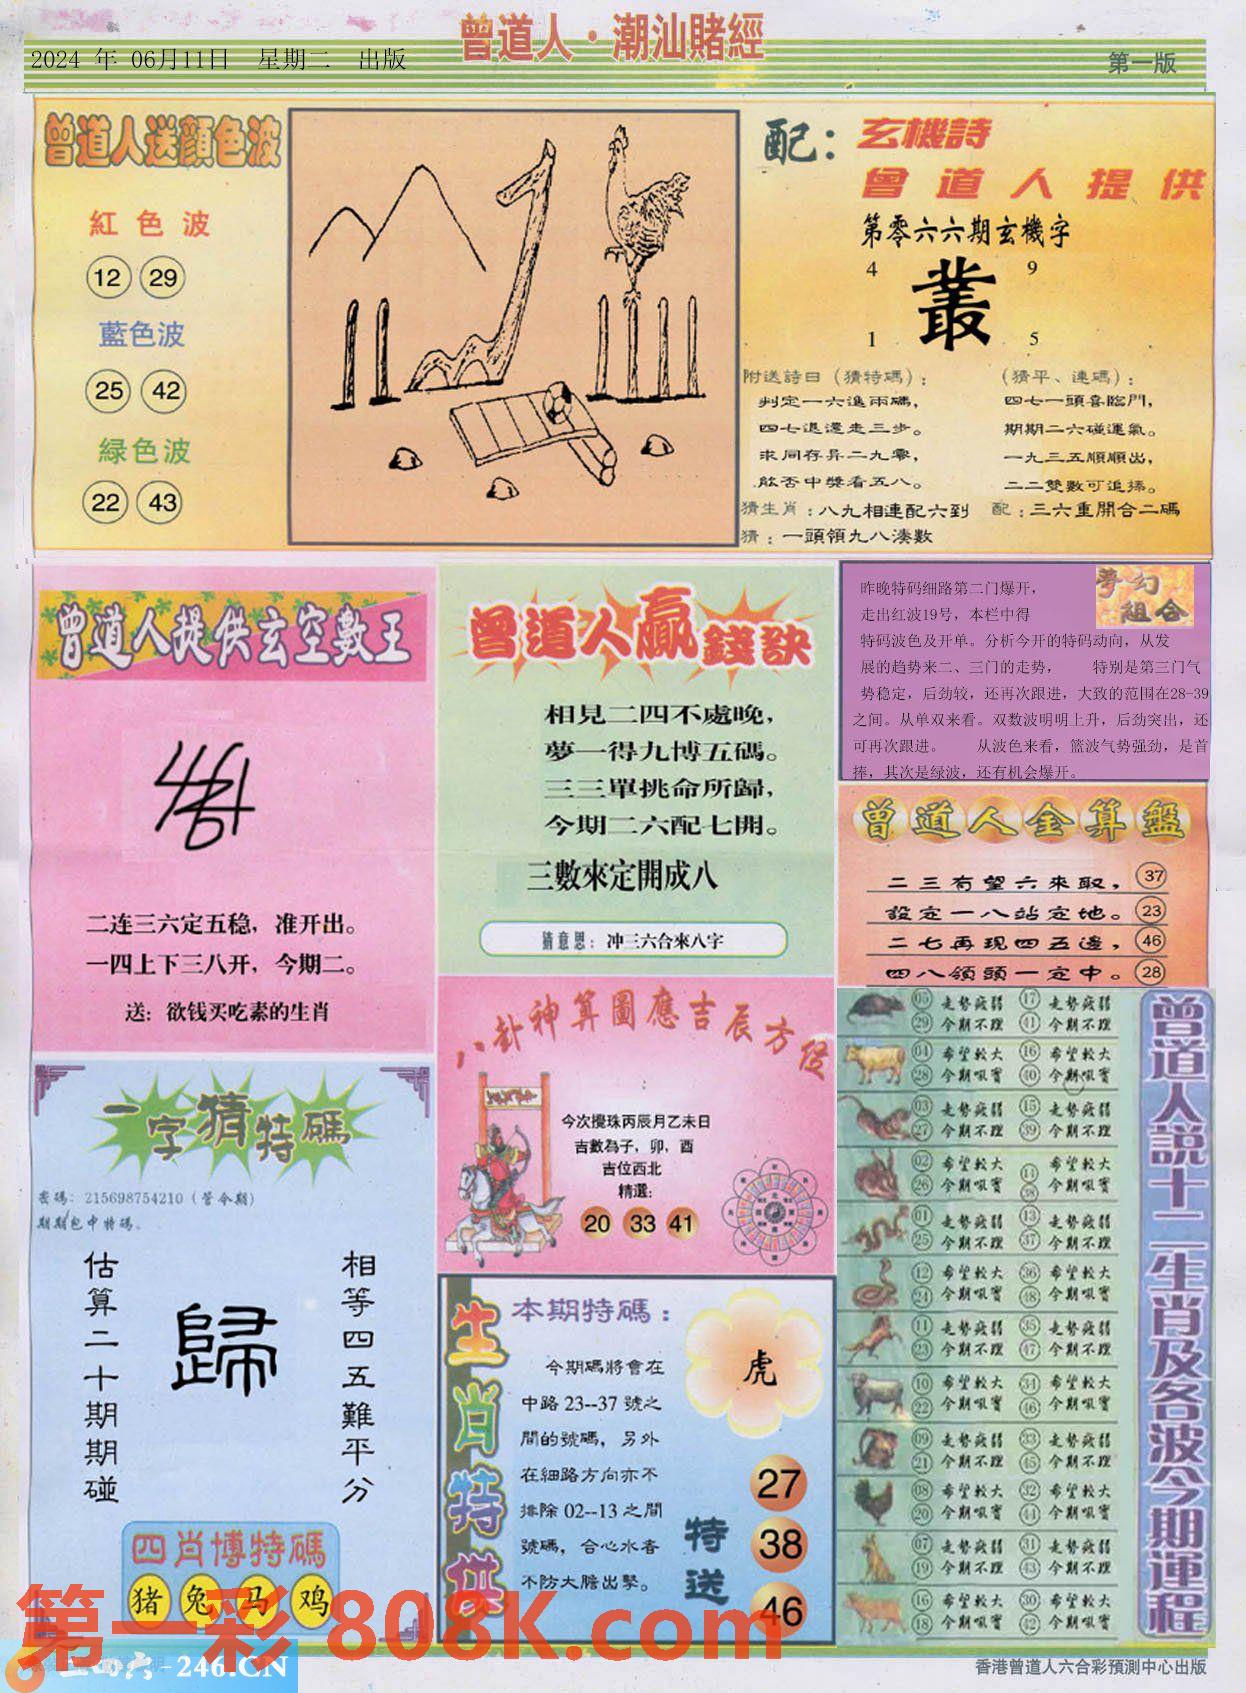 曾道人·潮汕賭經
2024 年 06月11日 星期二 出版
第一版
曾道人送顔色波
紅色波
12 29
藍色波
25 42
緑色波
22 43
配：
玄機詩
曾道人提供
第零六六期玄機字
4 9
叢
1 5
附送詩曰（猜特碼）：
判定一六進兩碼，
四七退還走三步。
求同存异二九零，
能否中獎看五八。
猜生肖：八九相連配六到
猜：一頭領九八湊數
（猜平、連碼）：
四七一頭喜臨門，
期期二六碰運氣。
一九三五順順出，
二二雙數可追捧。
配：三六重開合二碼
曾道人提供玄空數王
二连三六定五稳，准开出。
一四上下三八开，今期二。
送：欲钱买吃素的生肖
曾道人贏錢訣
相見二四不處晚，
夢一得九博五碼。
三三單挑命所歸，
今期二六配七開。
三數來定開成八
猜意思：冲三六合來八字
夢幻組合
昨晚特码细路第二门爆开，
走出红波19号，本栏中得
特码波色及开单。分析今开的特码动向，从发
展的趋势来二、三门的走势， 特别是第三门气
势稳定，后劲较，还再次跟进，大致的范围在28-39
之间。从单双来看。双数波明明上升，后劲突出，还
可再次跟进。 从波色来看，篮波气势强劲，是首
捧，其次是绿波，还有机会爆开。
曾道人金算盤
二三有望六來取， 37
設定一八站定地。 23
二七再现四五邊， 46
四八領頭一定中。 28
八卦神算圖應吉辰方位
今次攪珠丙辰月乙未日
吉數為子，卯，酉
吉位西北
精選：
20 33 41
一字猜特碼
密碼：215698754210（管今期）
期期包中特碼。
估算二十期期碰
歸
相等四五難平分
四肖博特碼
猪 兔 马 鸡
生肖特供
本期特碼：
今期碼將會在
中路 23--37 號之
間的號碼，另外
在細路方向亦不
排除 02--13 之間
號碼，合心水者
不防大膽出擊。
虎
特送
27
38
46
曾道人説十二生肖及各波今期運程
05 走勢疲弱 17 走勢疲弱
29 今期不理 41 今期不理
04 希望較大 16 希望較大
28 今期吼實 40 今期吼實
03 走勢疲弱 15 走勢疲弱
27 今期不理 39 今期不理
02 希望較大 14 希望較大
26 今期吼實 38 今期吼實
01 走勢疲弱 13 走勢疲弱
25 今期不理 37 今期不理
12 希望較大 36 希望較大
24 今期吼實 48 今期吼實
11 走勢疲弱 35 走勢疲弱
23 今期不理 47 今期不理
10 希望較大 34 希望較大
22 今期吼實 46 今期吼實
09 走勢疲弱 33 走勢疲弱
21 今期不理 45 今期不理
08 希望較大 32 希望較大
20 今期吼實 44 今期吼實
07 走勢疲弱 31 走勢疲弱
19 今期不理 43 今期不理
16 希望較大 30 希望較大
18 今期吼實 42 今期吼實
第一彩 808K.com
二四六-246.CN
香港曾道人六合彩預測中心出版